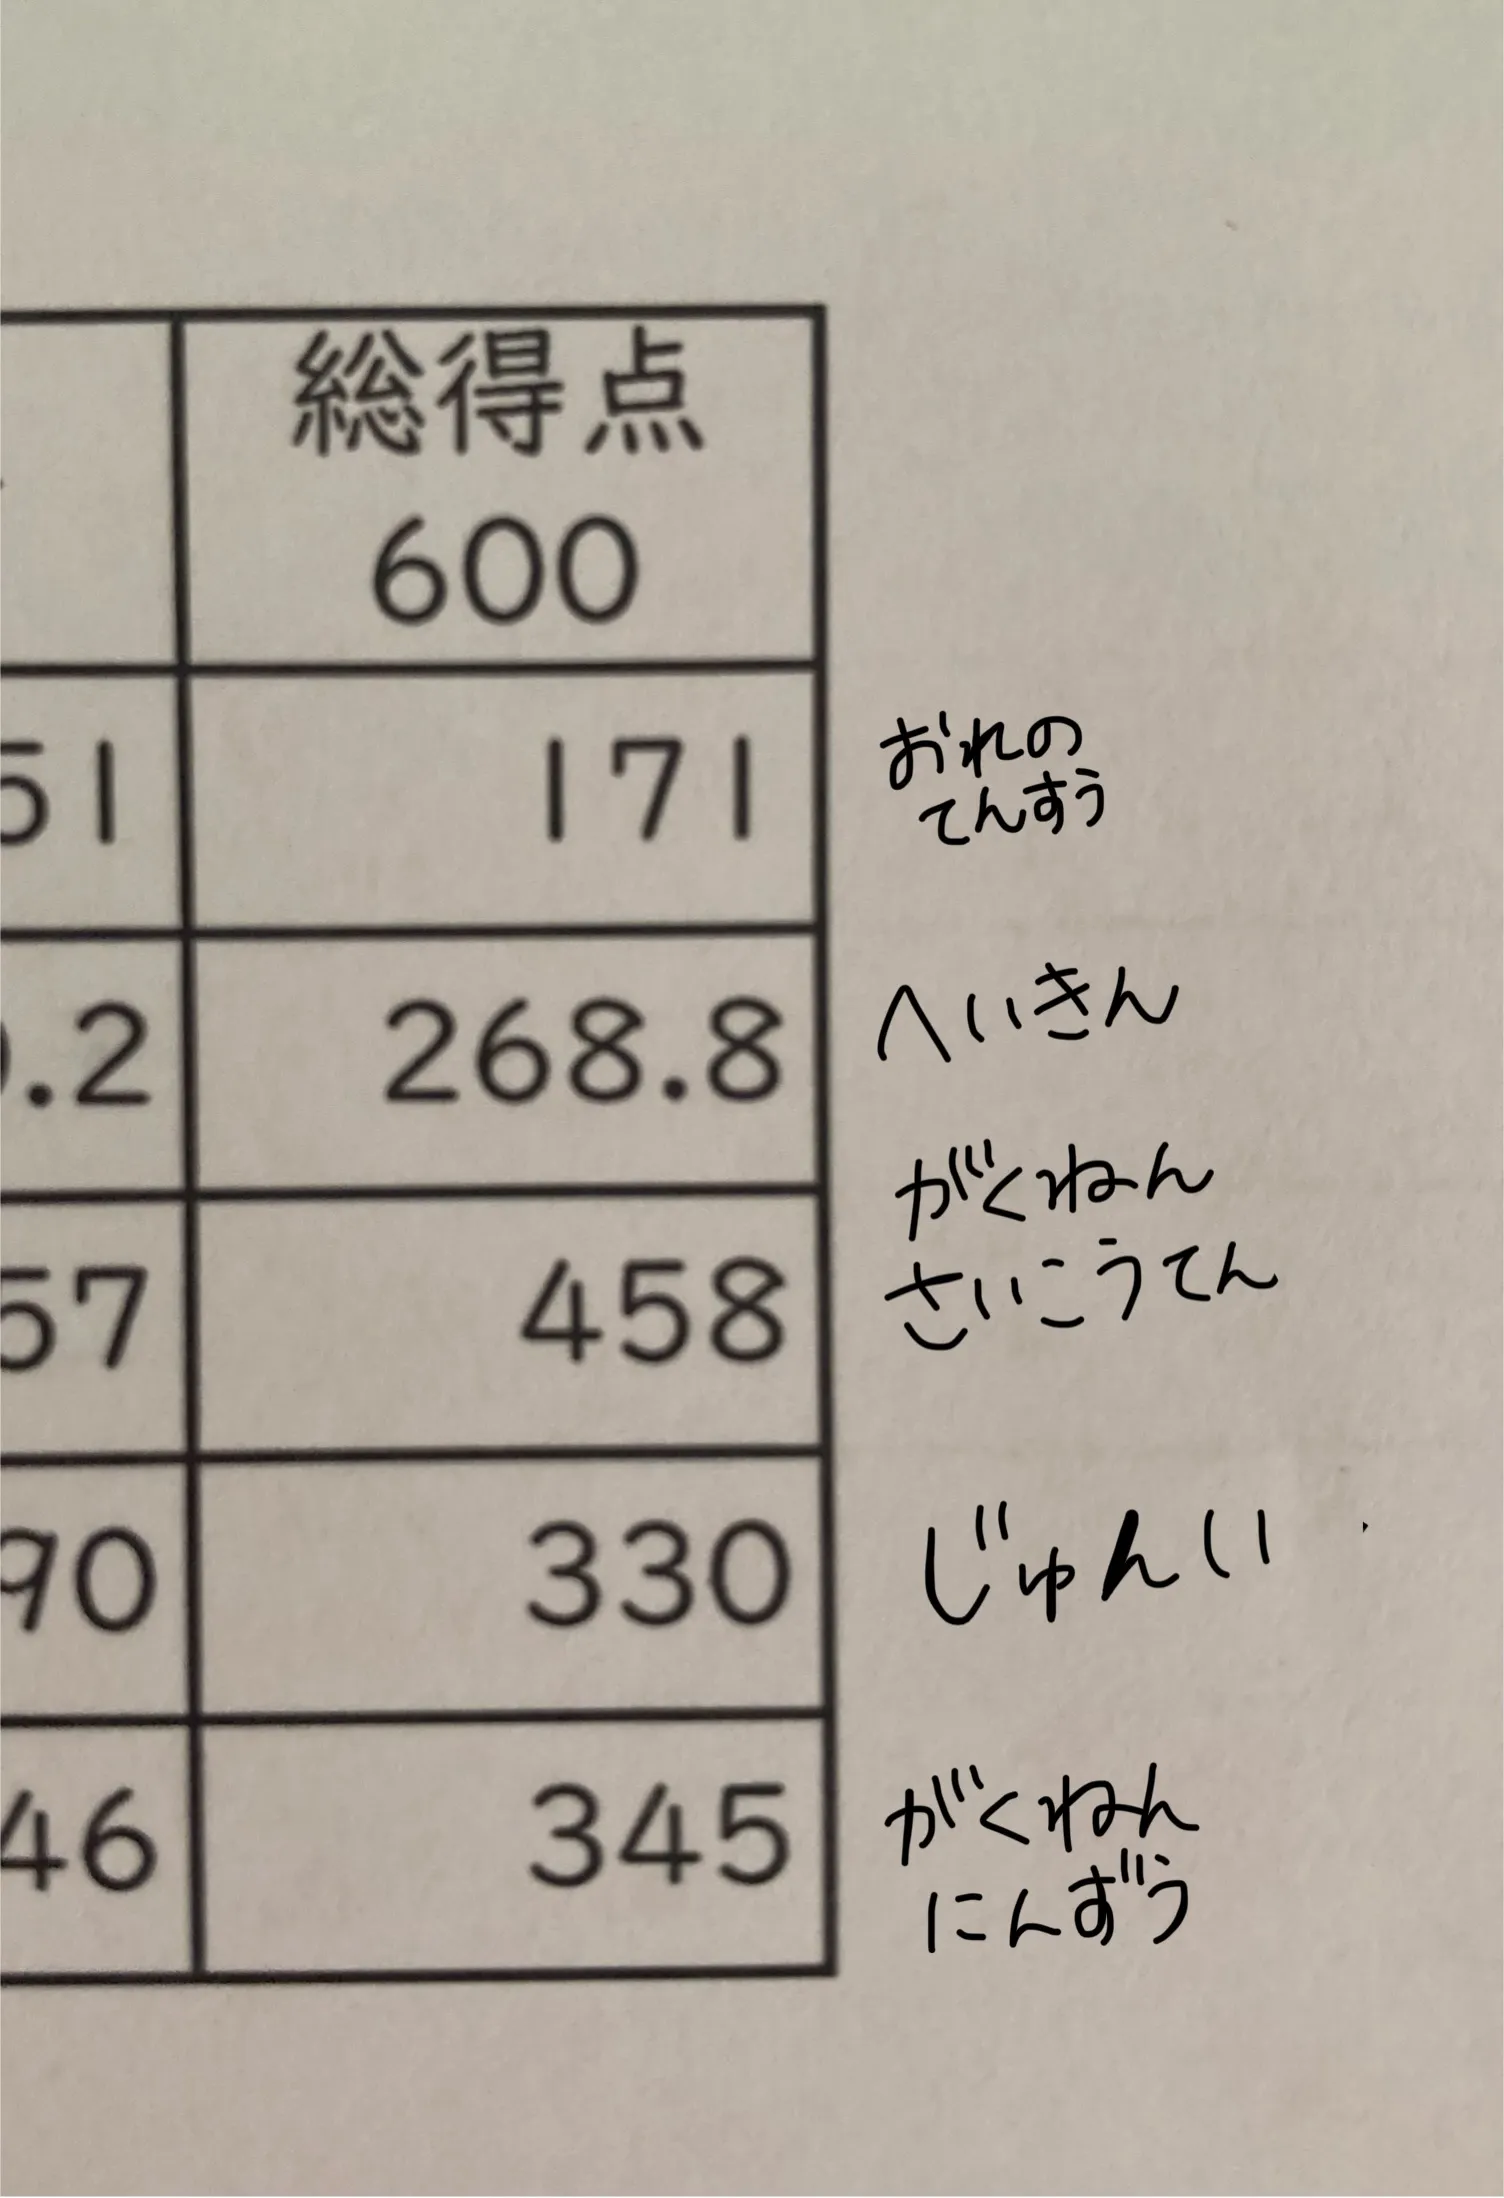 総得点
600
51 171 おれの
てんすう
.2 268.8 へいきん
がくねん
さいこうてん
57 458
90 330 じゅんい
46 345 がくねん
にんずう